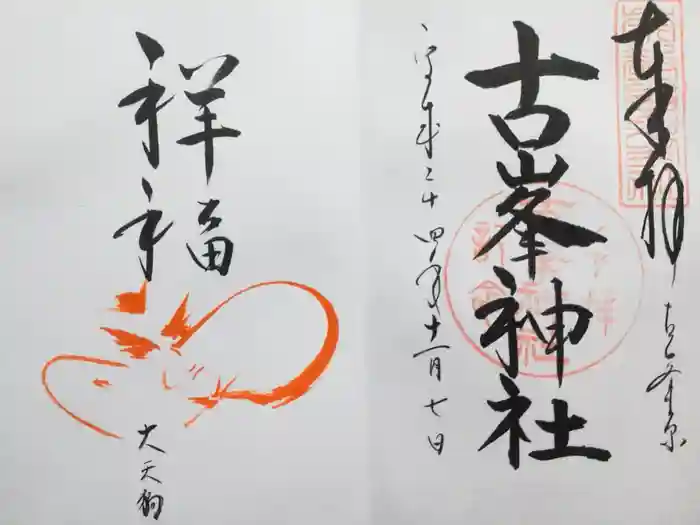 奉拝
古峯原
古峯神社
平成二十四年十一月七日
祥福
大天狗